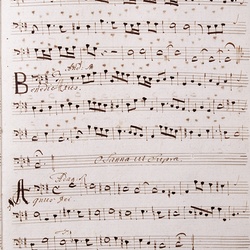 And.
Benedictus.
Osanna ut Supra
Adag.
Agnus Dei